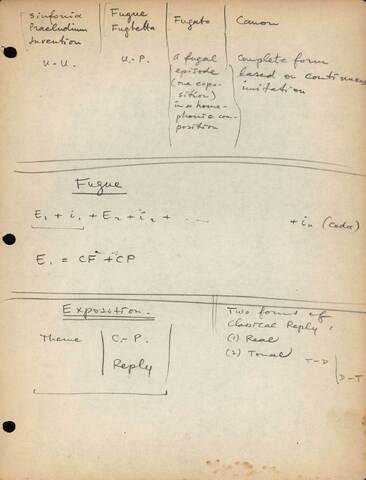 Sinfonia
Praeludium
Invention
U.-U.
Fugue
Fughetta
U.-P.
Fugato
A fugal
episode
(one expo-
sition)
in a homo-
phonic com-
position
Canon
Complete form
based on continuous
imitation
Fugue
E₁ + i₁ + E₂ + i₂ + ..... + iₙ (coda)
E₁ = CF + CP
Exposition.
Theme
C.-P.
Reply
Two forms of
Classical Reply:
(1) Real
(2) Tonal
T-D
D-T